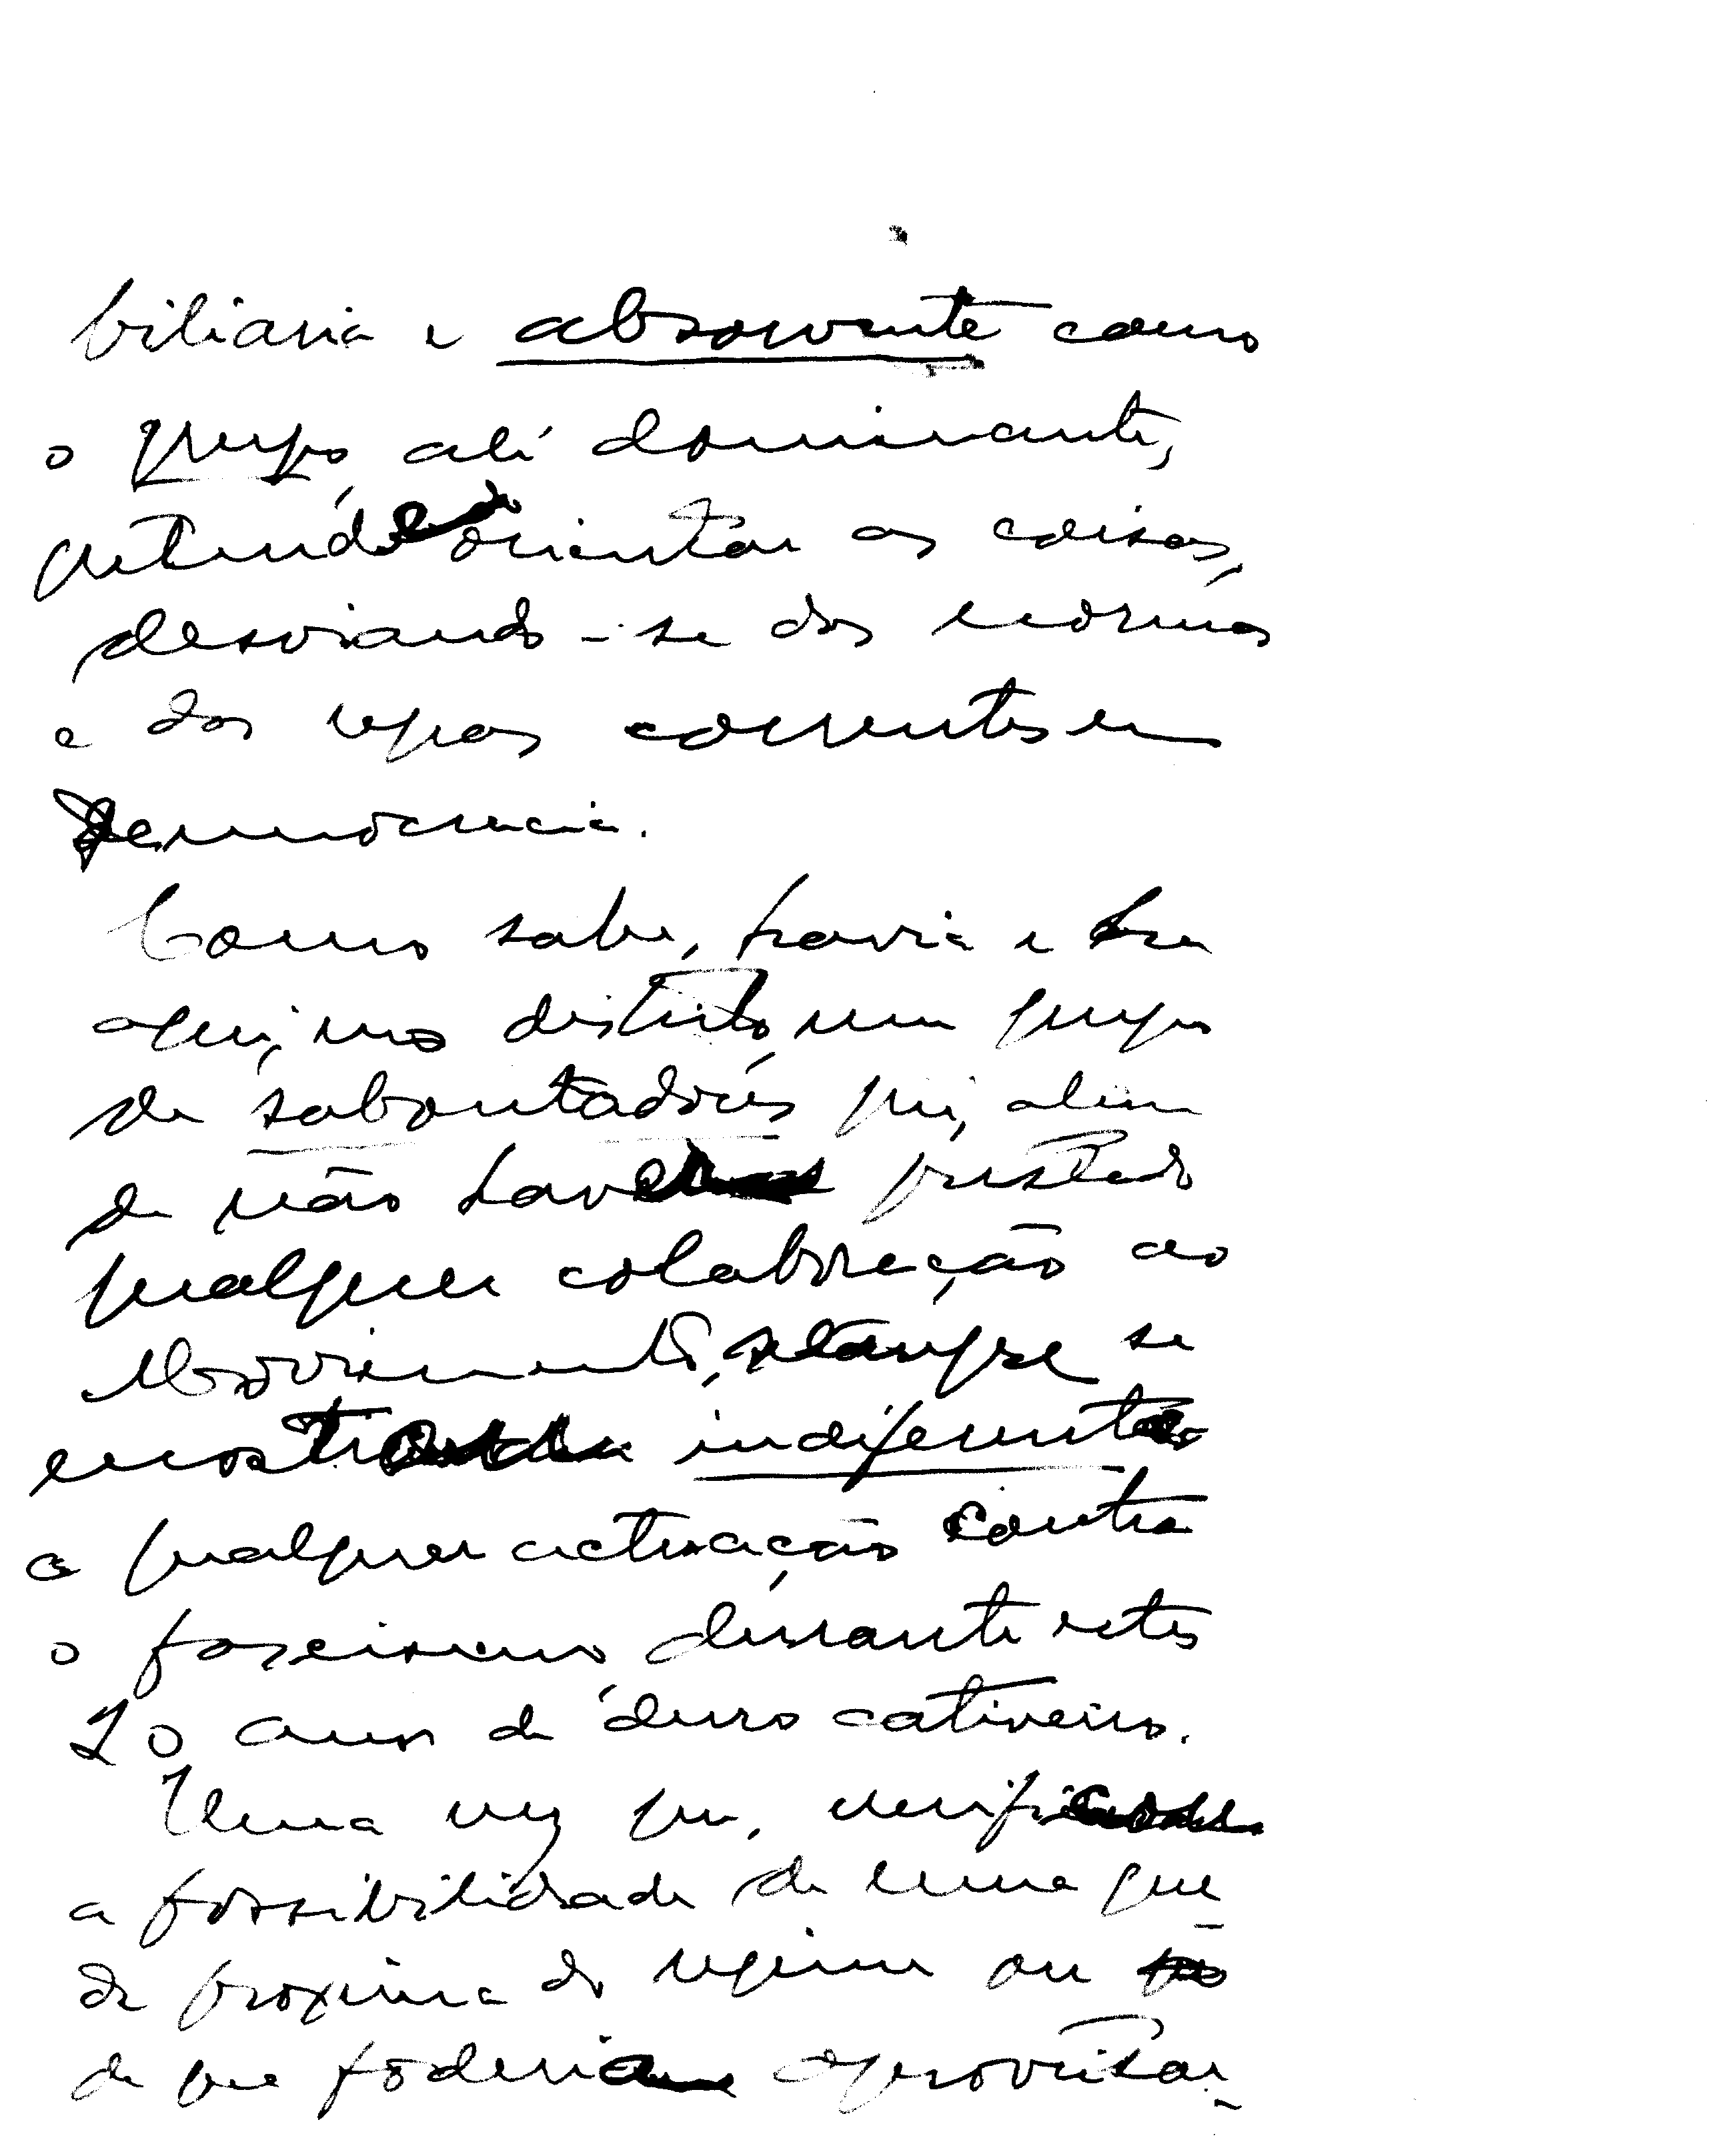 biliaria e absorvente como
o grupo, ali dominante,
pretende orientar as coisas,
desviando-se das normas
e das regras correntes em
Democracia.
Como sabe, havia e ha
aqui, no distrito, um grupo
de sabotadores que, alem
de não haver prestado
qualquer colaboração ao
Movimento, sempre se
mostrou indiferente
a qualquer actuação contra
o fascismo, durante estes
20 anos de duro cativeiro.
Uma vez que,
a possibilidade de uma que
da proxima do regime ou
de que poderia aproveitar-